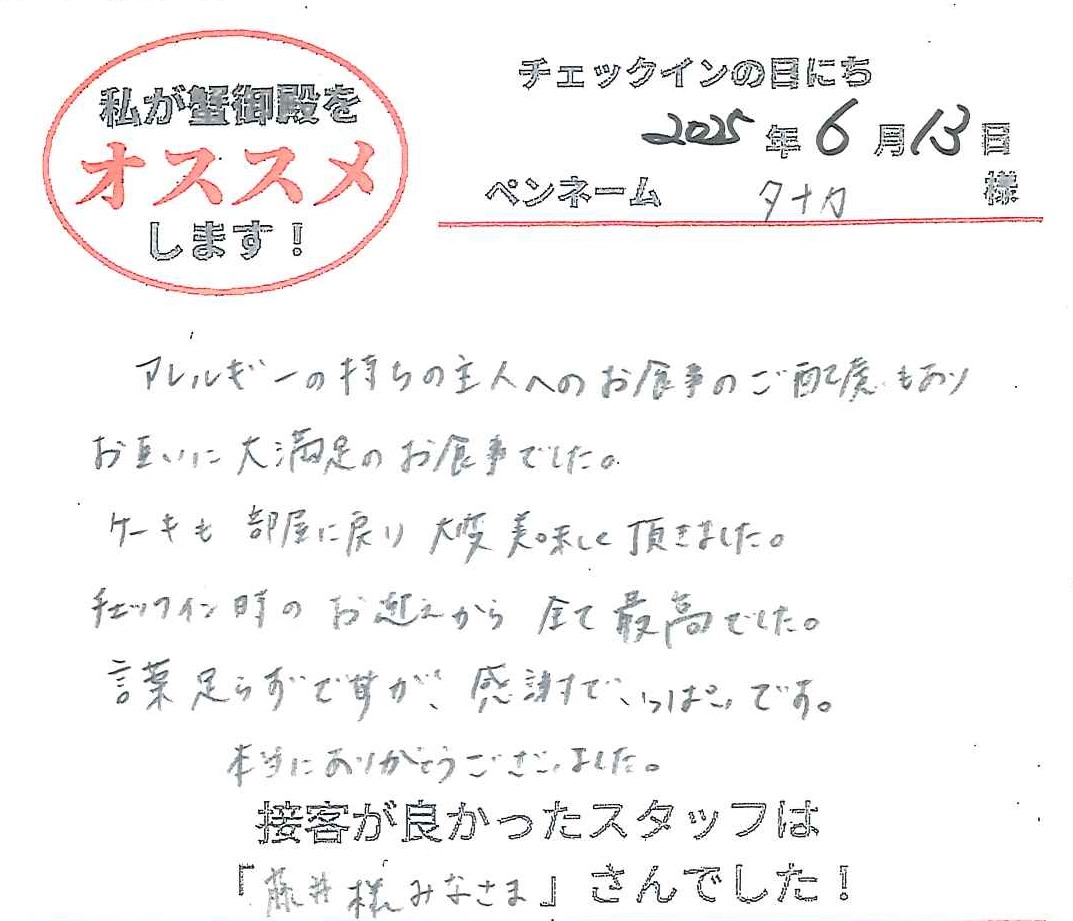 私が蟹御殿を
オススメ
します！
チェックインの日にち
2025年6月13日
ペンネーム タナカ 様
アレルギーの持ちの主人へのお食事のご配慮もあり
お互いに大満足のお食事でした。
ケーキも部屋に戻り大変美味しく頂きました。
チェックイン時のお迎えから全て最高でした。
言葉足らずですが、感謝でいっぱいです。
本当にありがとうございました。
接客が良かったスタッフは
「藤井様みなさま」さんでした！